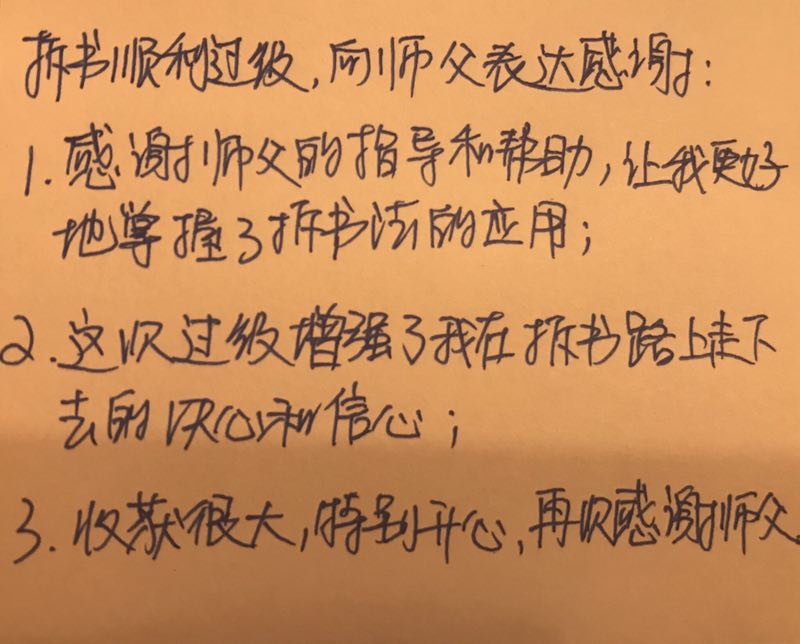 拆书顺利过级,向师父表达感谢:
1.感谢师父的指导和帮助,让我更好
地掌握了拆书法的应用;
2.这次过级增强了我在拆书路上走下
去的决心和信心;
3.收获很大,特别开心,再次感谢师父.